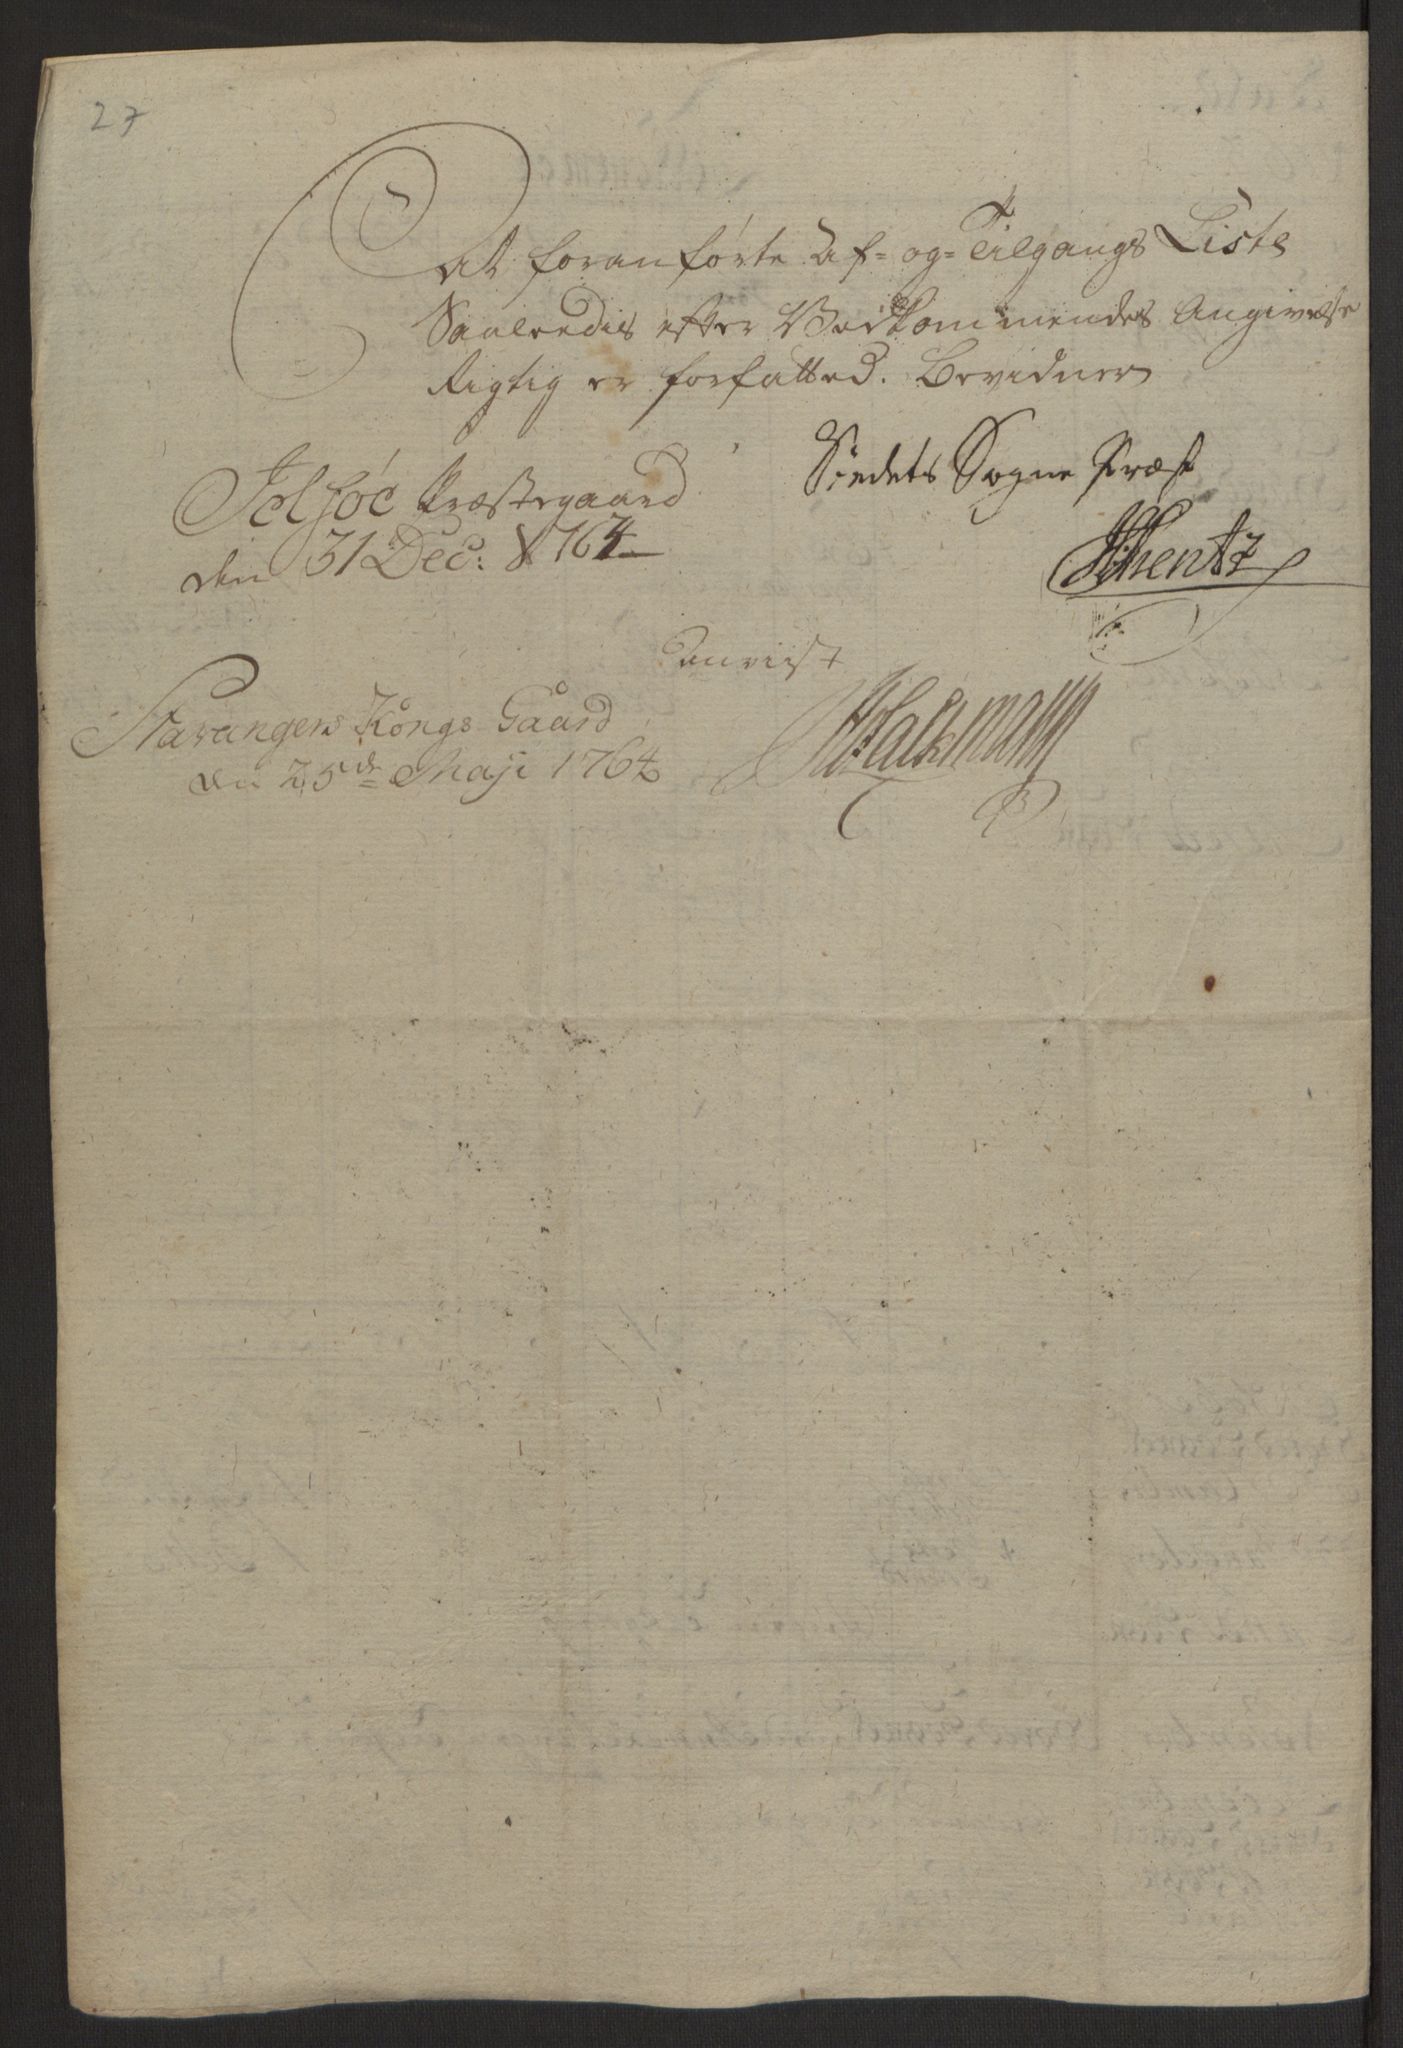 27
At foranførte Af= og= Tilgangs Liste
Saaleedis efter Vedkommendes Angivelse
Rigtig er forfatted. Bevidner
Jelsøe Præstegaard
den 31 Dec: 1764
Stædets Sogne Præst
Anviist
Stavangers Kongs Gaard
den 25de Maji 1764